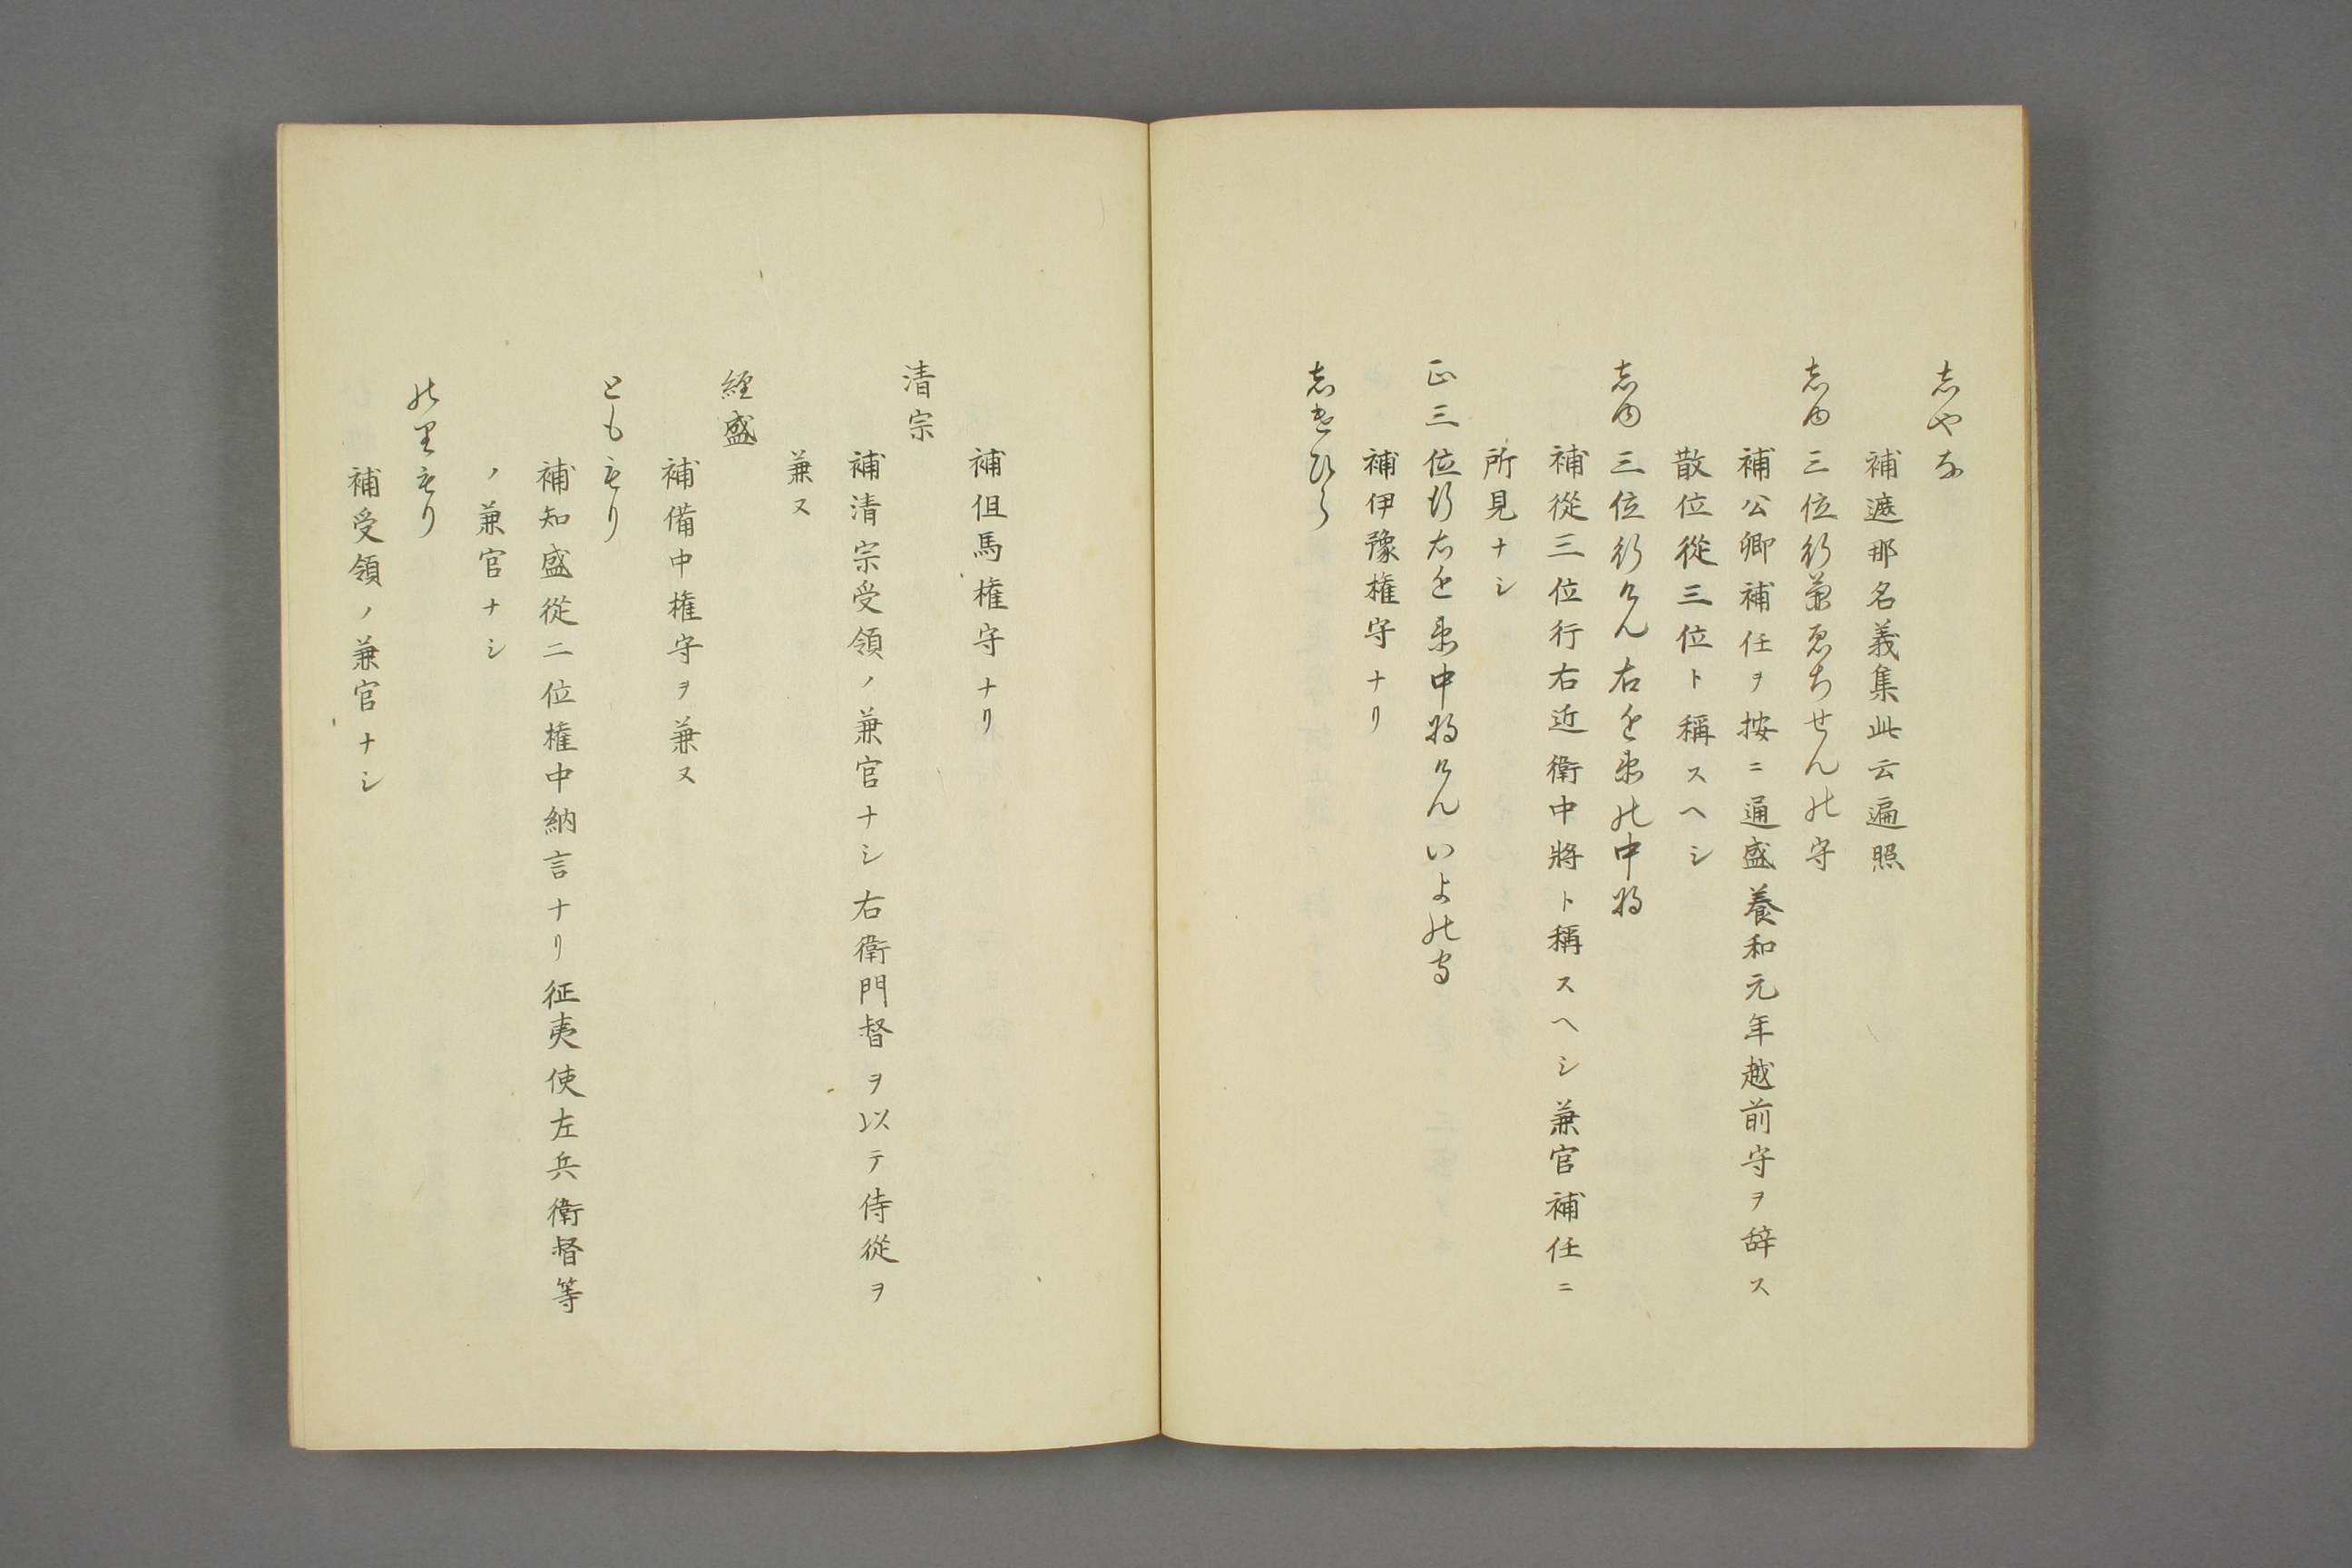 志やな
補遮那名義集此云遍照
志ゆ三位行兼ゑちせんの守
補公卿補任ヲ按ニ通盛養和元年越前守ヲ辞ス
散位從三位ト稱スヘシ
志ゆ三位行けん右近衛の中将
補從三位行右近衛中將ト稱スヘシ兼官補任ニ
所見ナシ
正三位行右近衛中将けんいよの守
補伊豫權守ナリ
志けひら
補但馬權守ナリ
清宗
補清宗受領ノ兼官ナシ右衛門督ヲ以テ侍從ヲ
兼ヌ
經盛
補備中權守ヲ兼ヌ
とももり
補知盛從二位權中納言ナリ征夷使左兵衛督等
ノ兼官ナシ
のりもり
補受領ノ兼官ナシ